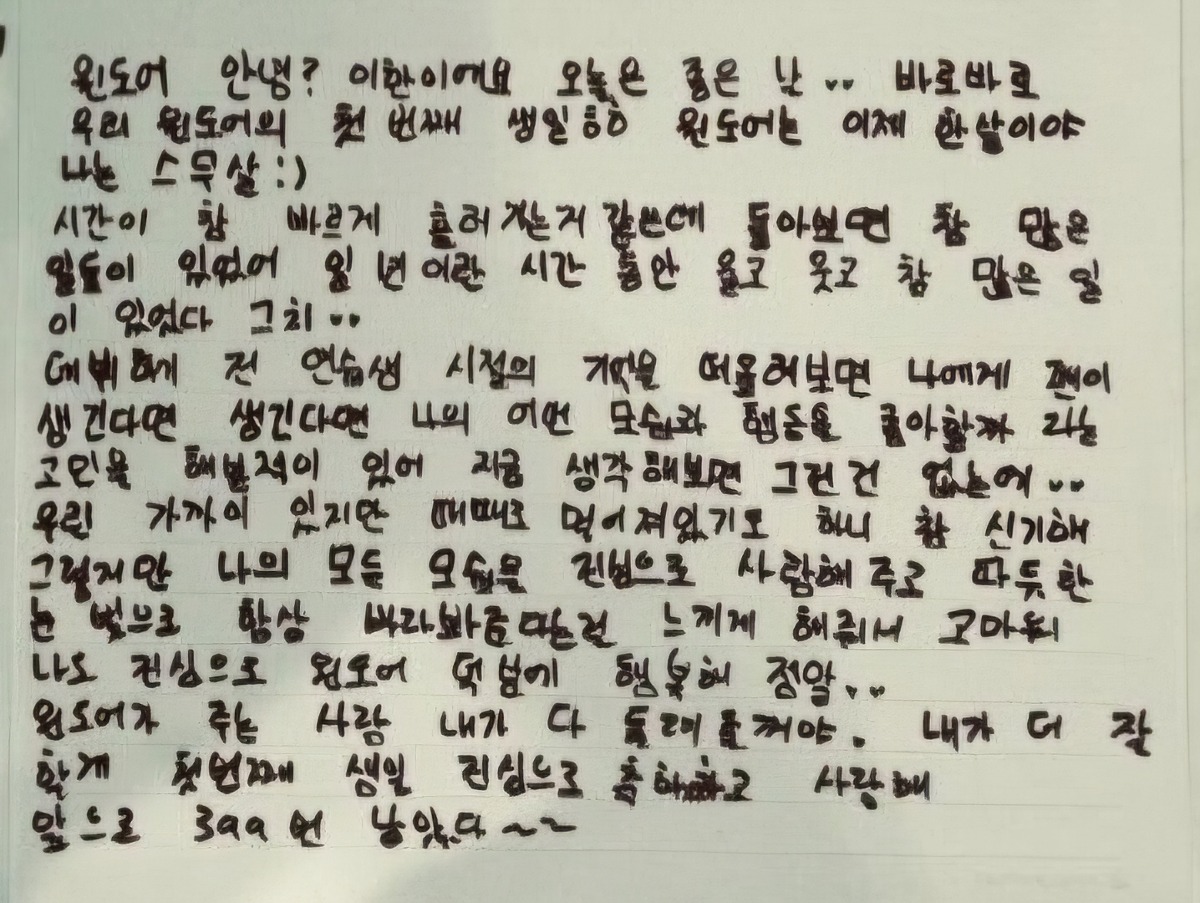 원도어 안녕? 이한이에요 오늘은 좋은 날.. 바로바로
우리 원도어의 첫 번째 생일 ㅎㅎ 원도어는 이제 한살이야
나는 스무살 :)
시간이 참 빠르게 흘러가는거 같은데 돌아보면 참 많은
일들이 있었어 일 년이란 시간 동안 울고 웃고 참 많은 일
이 있었다 그치..
데뷔하기 전 연습생 시절의 기억을 떠올려보면 나에게 팬이
생긴다면 생긴다면 나의 어떤 모습과 행동을 좋아할까 라는
고민을 해봤적이 있어 지금 생각해보면 그런 건 없는데..
우린 가까이 있지만 때때로 멀어져있기도 하니 참 신기해
그렇지만 나의 모든 모습을 진심으로 사랑해 주고 따듯한
눈 빛으로 항상 바라봐준다는걸 느끼게 해줘서 고마워
나도 진심으로 원도어 덕분에 행복해 정말...
원도어가 주는 사랑 내가 다 돌려줄꺼야. 내가 더 잘
할게 첫번째 생일 진심으로 축하하고 사랑해
앞으로 399번 남았다~~